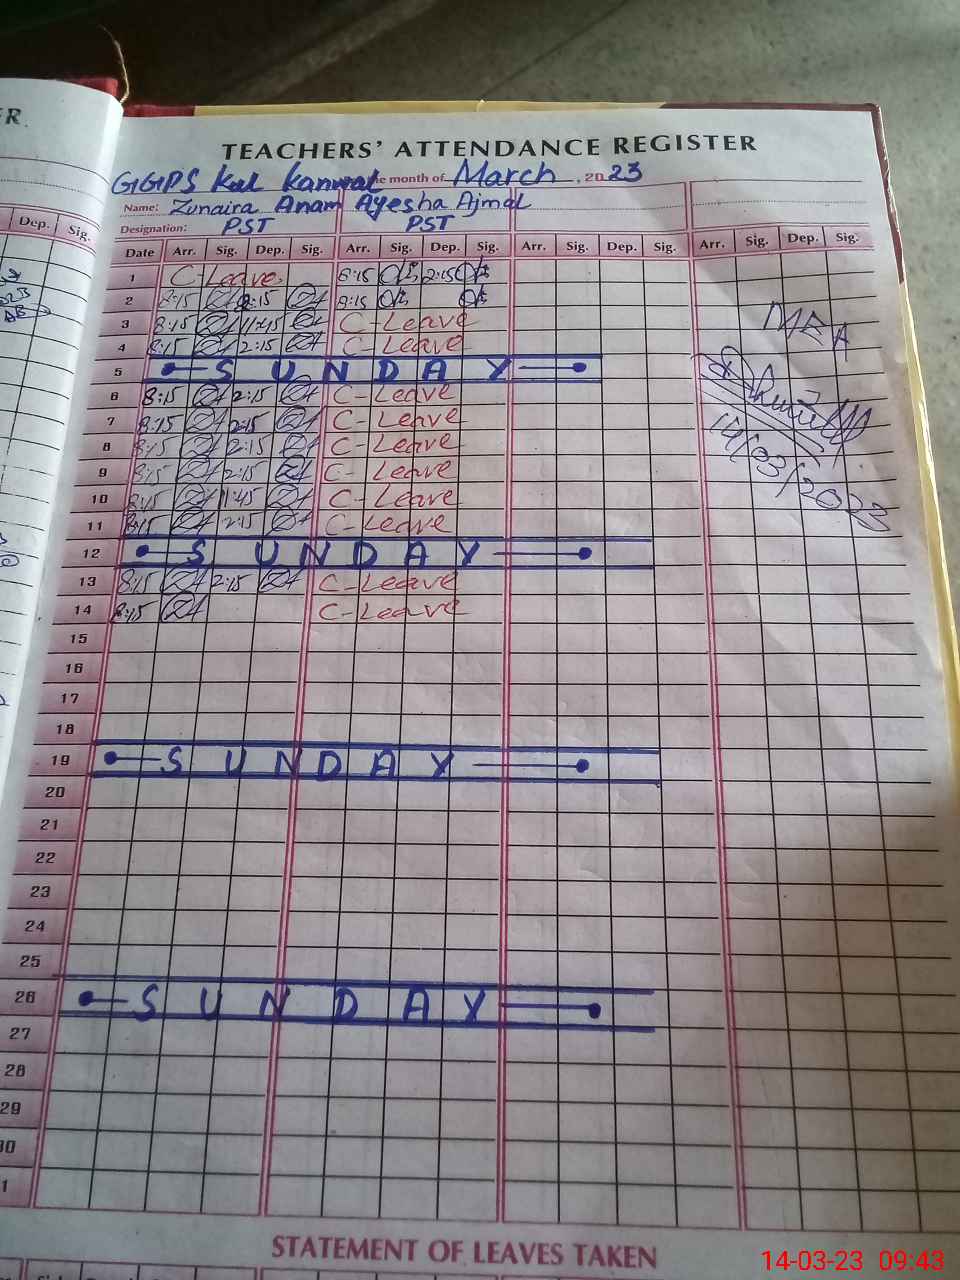 ER.
TEACHERS' ATTENDANCE REGISTER
GGPS Kul Kanwal the month of March, 2023
Name: Zunaira Anam Ayesha Ajmal
Designation: PST PST
Dep. Sig. Date Arr. Sig. Dep. Sig. Arr. Sig. Dep. Sig. Arr. Sig. Dep. Sig. Arr. Sig. Dep. Sig.
1 C-Leave. 8:15 2:15
2 8:15 2:15 8:15
3 8:15 11:45 C-Leave
4 8:15 2:15 C-Leave
5 SUNDAY
6 8:15 2:15 C-Leave
7 8:15 2:15 C-Leave
8 8:15 2:15 C-Leave
9 8:15 2:15 C-Leave
10 8:15 11:45 C-Leave
11 8:15 2:15 C-Leave
12 SUNDAY
13 8:15 2:15 C-Leave
14 8:15 C-Leave
15
16
17
18
19 SUNDAY
20
21
22
23
24
25
26 SUNDAY
27
28
29
30
1
MEA
14/03/2023
STATEMENT OF LEAVES TAKEN
14-03-23 09:43